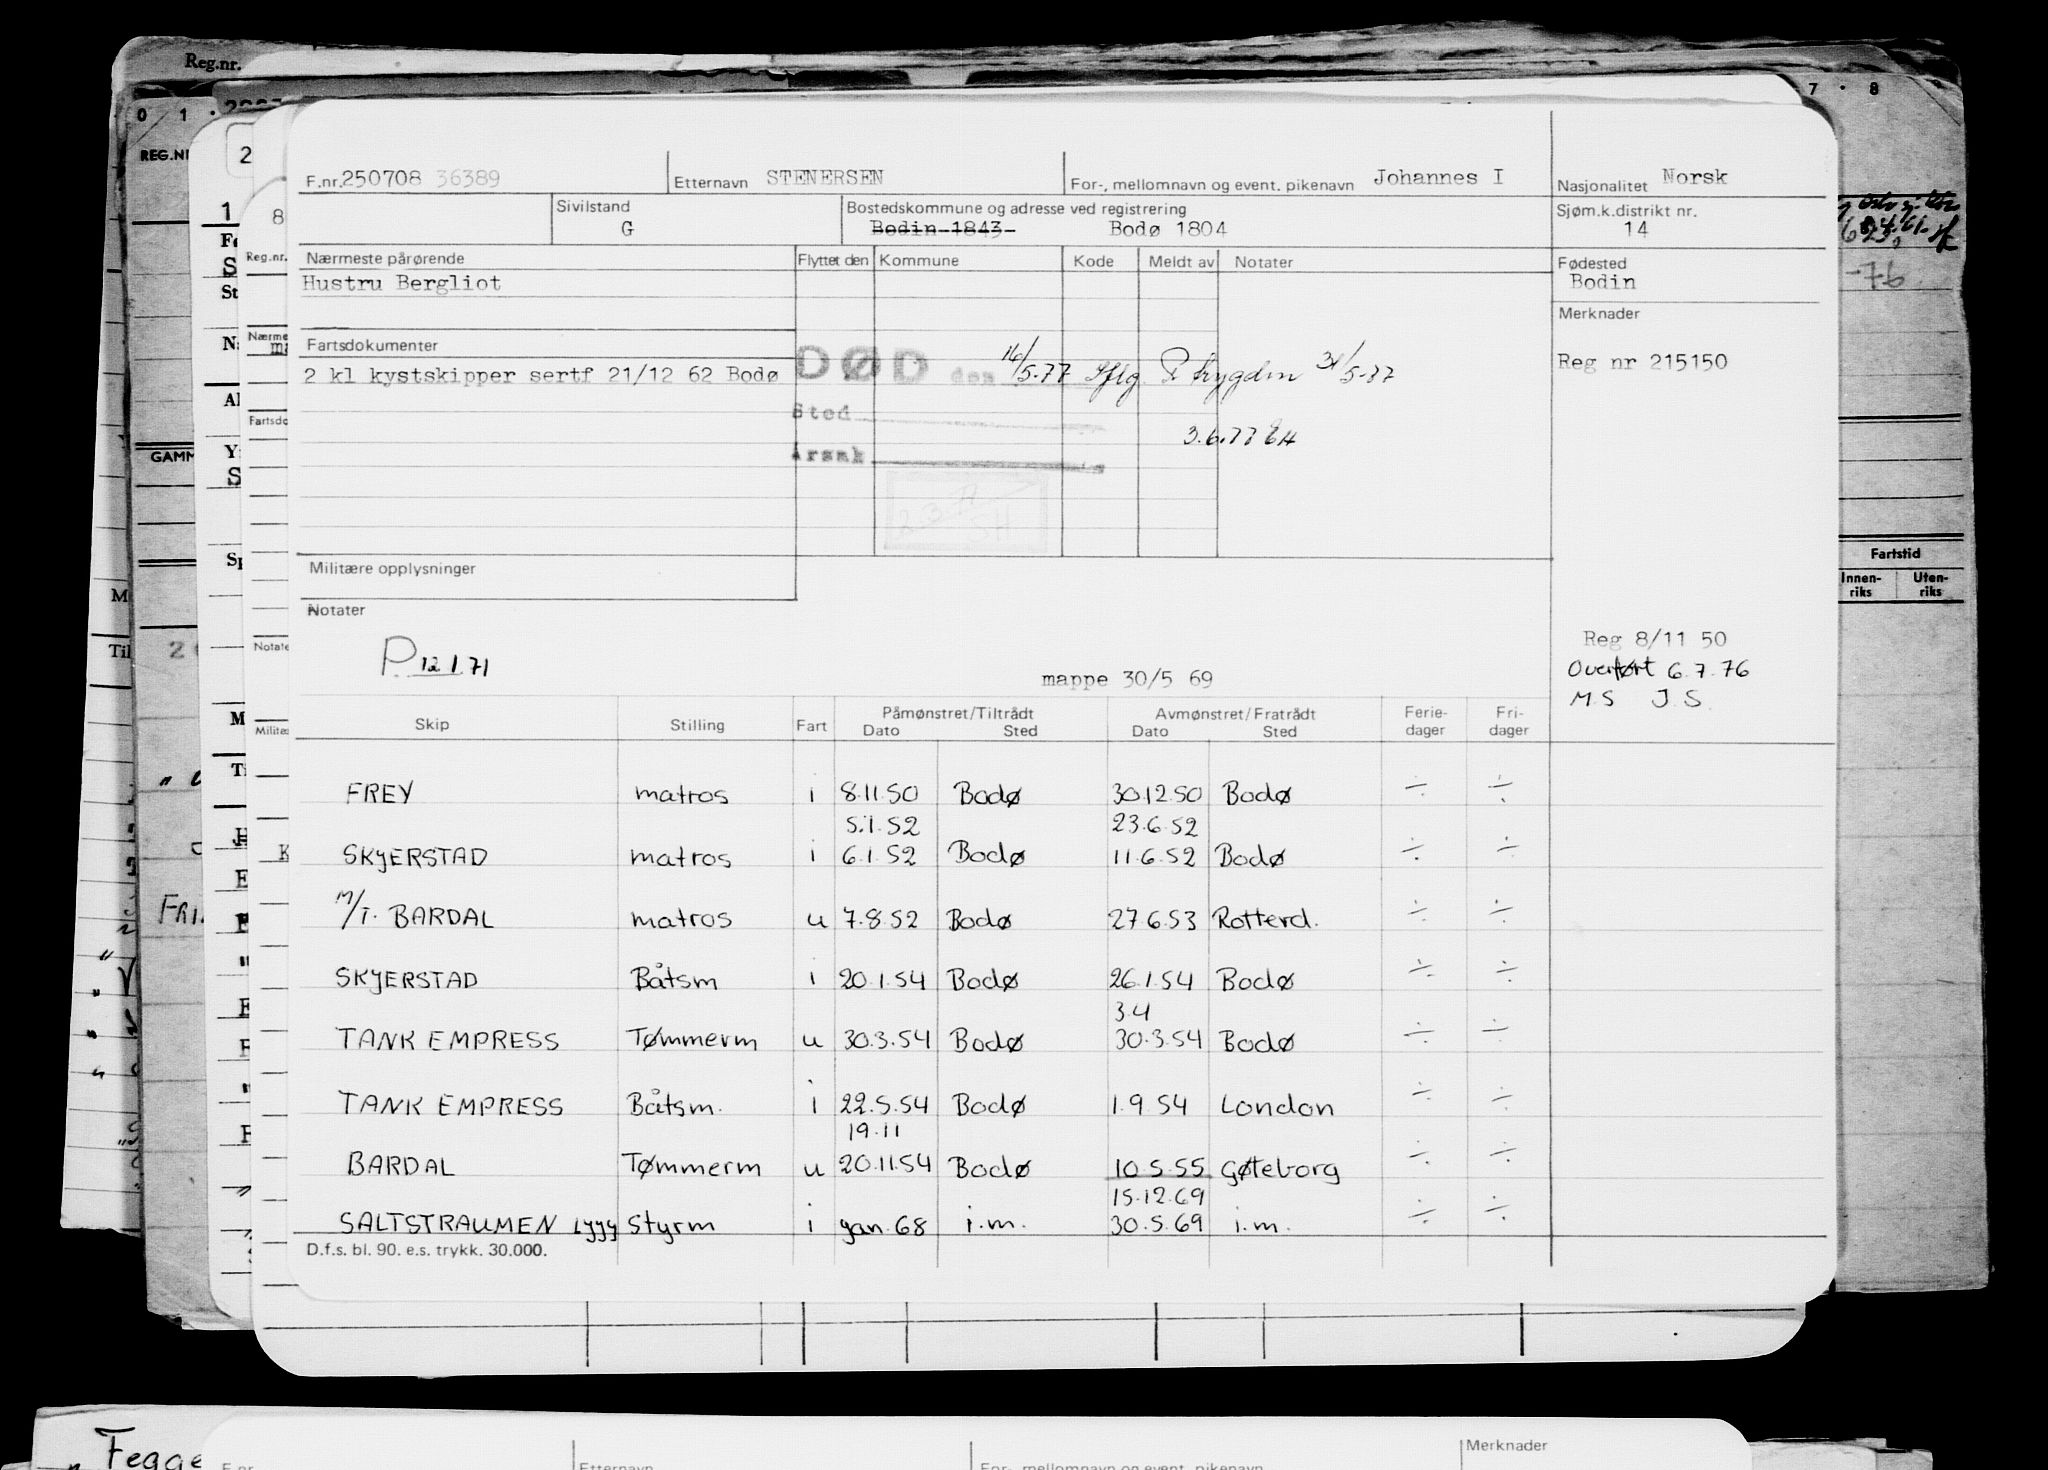 Reg.nr.
0 1 . 7 . 8
REG.NR
F.nr. 250708 36389 Etternavn STENERSEN For-, mellomnavn og event. pikenavn Johannes I Nasjonalitet Norsk
Sivilstand G Bostedskommune og adresse ved registrering Bodin 1843 Bodø 1804 Sjøm.k.distrikt nr. 14
Nærmeste pårørende Flyttet den Kommune Kode Meldt av Notater Fødested
Hustru Bergliot Bodin
Merknader
Fartsdokumenter
2 kl kystskipper sertf 21/12 62 Bodø DØD den 16/5-77 Iflg. Trygden 31/5-77 Reg nr 215150
Sted
3.6.77 EH
Årsak
Militære opplysninger
Notater
Reg 8/11 50
P 12.1.71 mappe 30/5 69 Overført 6.7.76
M.S J.S.
Skip Stilling Fart Påmønstret/Tiltrådt Avmønstret/Fratrådt Ferie- Fri-
Dato Sted Dato Sted dager dager
FREY matros i 8.11.50 Bodø 30.12.50 Bodø ÷ ÷
5.1.52 23.6.52
SKJERSTAD matros i 6.1.52 Bodø 11.6.52 Bodø ÷ ÷
M/T. BARDAL matros u 7.8.52 Bodø 27.6.53 Rotterd. ÷ ÷
SKJERSTAD Båtsm i 20.1.54 Bodø 26.1.54 Bodø ÷ ÷
3.4
TANK EMPRESS Tømmerm u 30.3.54 Bodø 30.3.54 Bodø ÷ ÷
TANK EMPRESS Båtsm. i 22.5.54 Bodø 1.9.54 London ÷ ÷
19.11
BARDAL Tømmerm u 20.11.54 Bodø 10.5.55 Gøteborg ÷ ÷
15.12.69
SALTSTRAUMEN LYGY Styrm i jan.68 i.m. 30.5.69 i.m. ÷ ÷
D.f.s. bl. 90. e.s. trykk. 30.000.
Fartstid
Innen- Uten-
riks riks
Merknader
F.nr. Etternavn For-, mellomnavn og event. pikenavn